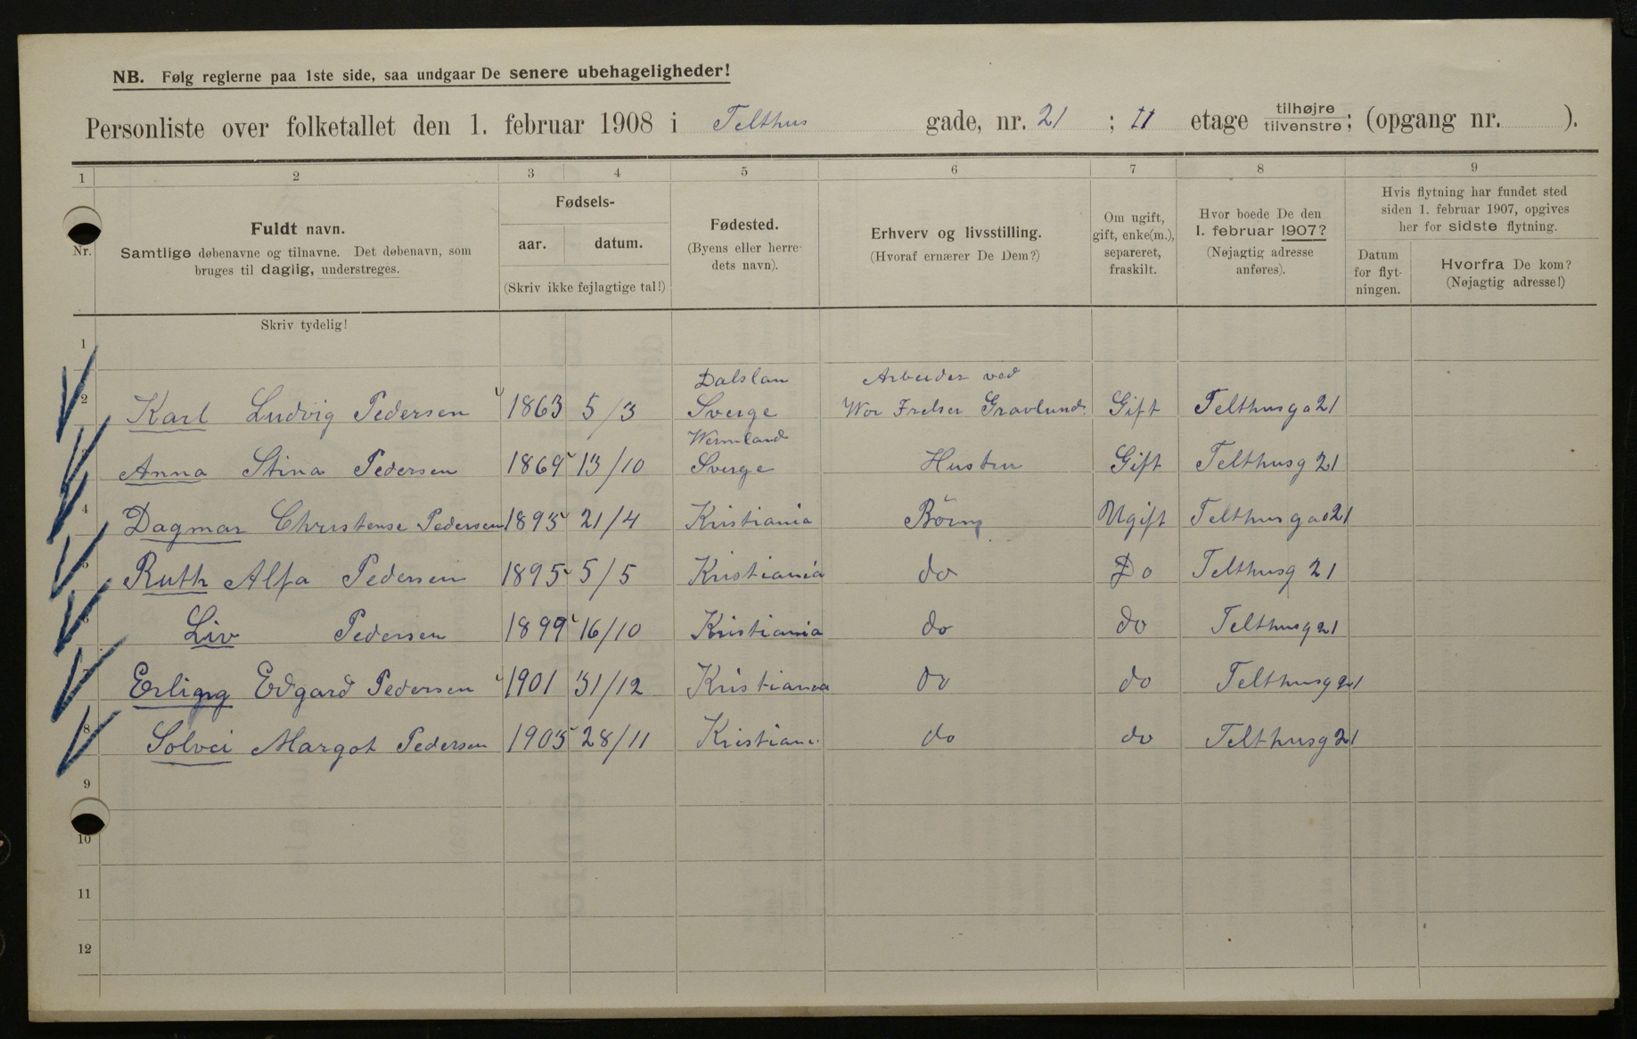 NB. Følg reglerne paa 1ste side, saa undgaar De senere ubehageligheder!
Personliste over folketallet den 1. februar 1908 i Telthus gade, nr. 21 ; II etage tilhøjre tilvenstre; (opgang nr. ).
1 2 3 4 5 6 7 8 9
Nr.
Fuldt navn.
Samtlige døbenavne og tilnavne. Det døbenavn, som
bruges til daglig, understreges.
Fødsels-
aar. datum.
(Skriv ikke fejlagtige tal!)
Fødested.
(Byens eller herre-
dets navn).
Erhverv og livsstilling.
(Hvoraf ernærer De Dem?)
Om ugift,
gift, enke(m.),
separeret,
fraskilt.
Hvor boede De den
1. februar 1907?
(Nøjagtig adresse
anføres).
Hvis flytning har fundet sted
siden 1. februar 1907, opgives
her for sidste flytning.
Datum
for flyt-
ningen.
Hvorfra De kom?
(Nøjagtig adresse!)
Skriv tydelig!
1
Dalslan Arbeider ved
2 Karl Ludvig Pedersen 1863 5/3 Sverge Wor Frelser Gravlund Gift Telthusga 21
Wermland
Anna Stina Pedersen 1869 13/10 Sverge Hustru Gift Telthusg 21
4 Dagmar Christense Pedersen 1893 21/4 Kristiania Børn Ugift Telthusgad 21
5 Ruth Alfa Pedersen 1895 5/5 Kristiania do Do Telthusg 21
6 Liv Pedersen 1899 16/10 Kristiania do do Telthusg 21
7 Erling Edgard Pedersen 1901 31/12 Kristiania do do Telthusg 21
8 Solvei Margot Pedersen 1905 28/11 Kristiani do do Telthusg 21
9
10
11
12